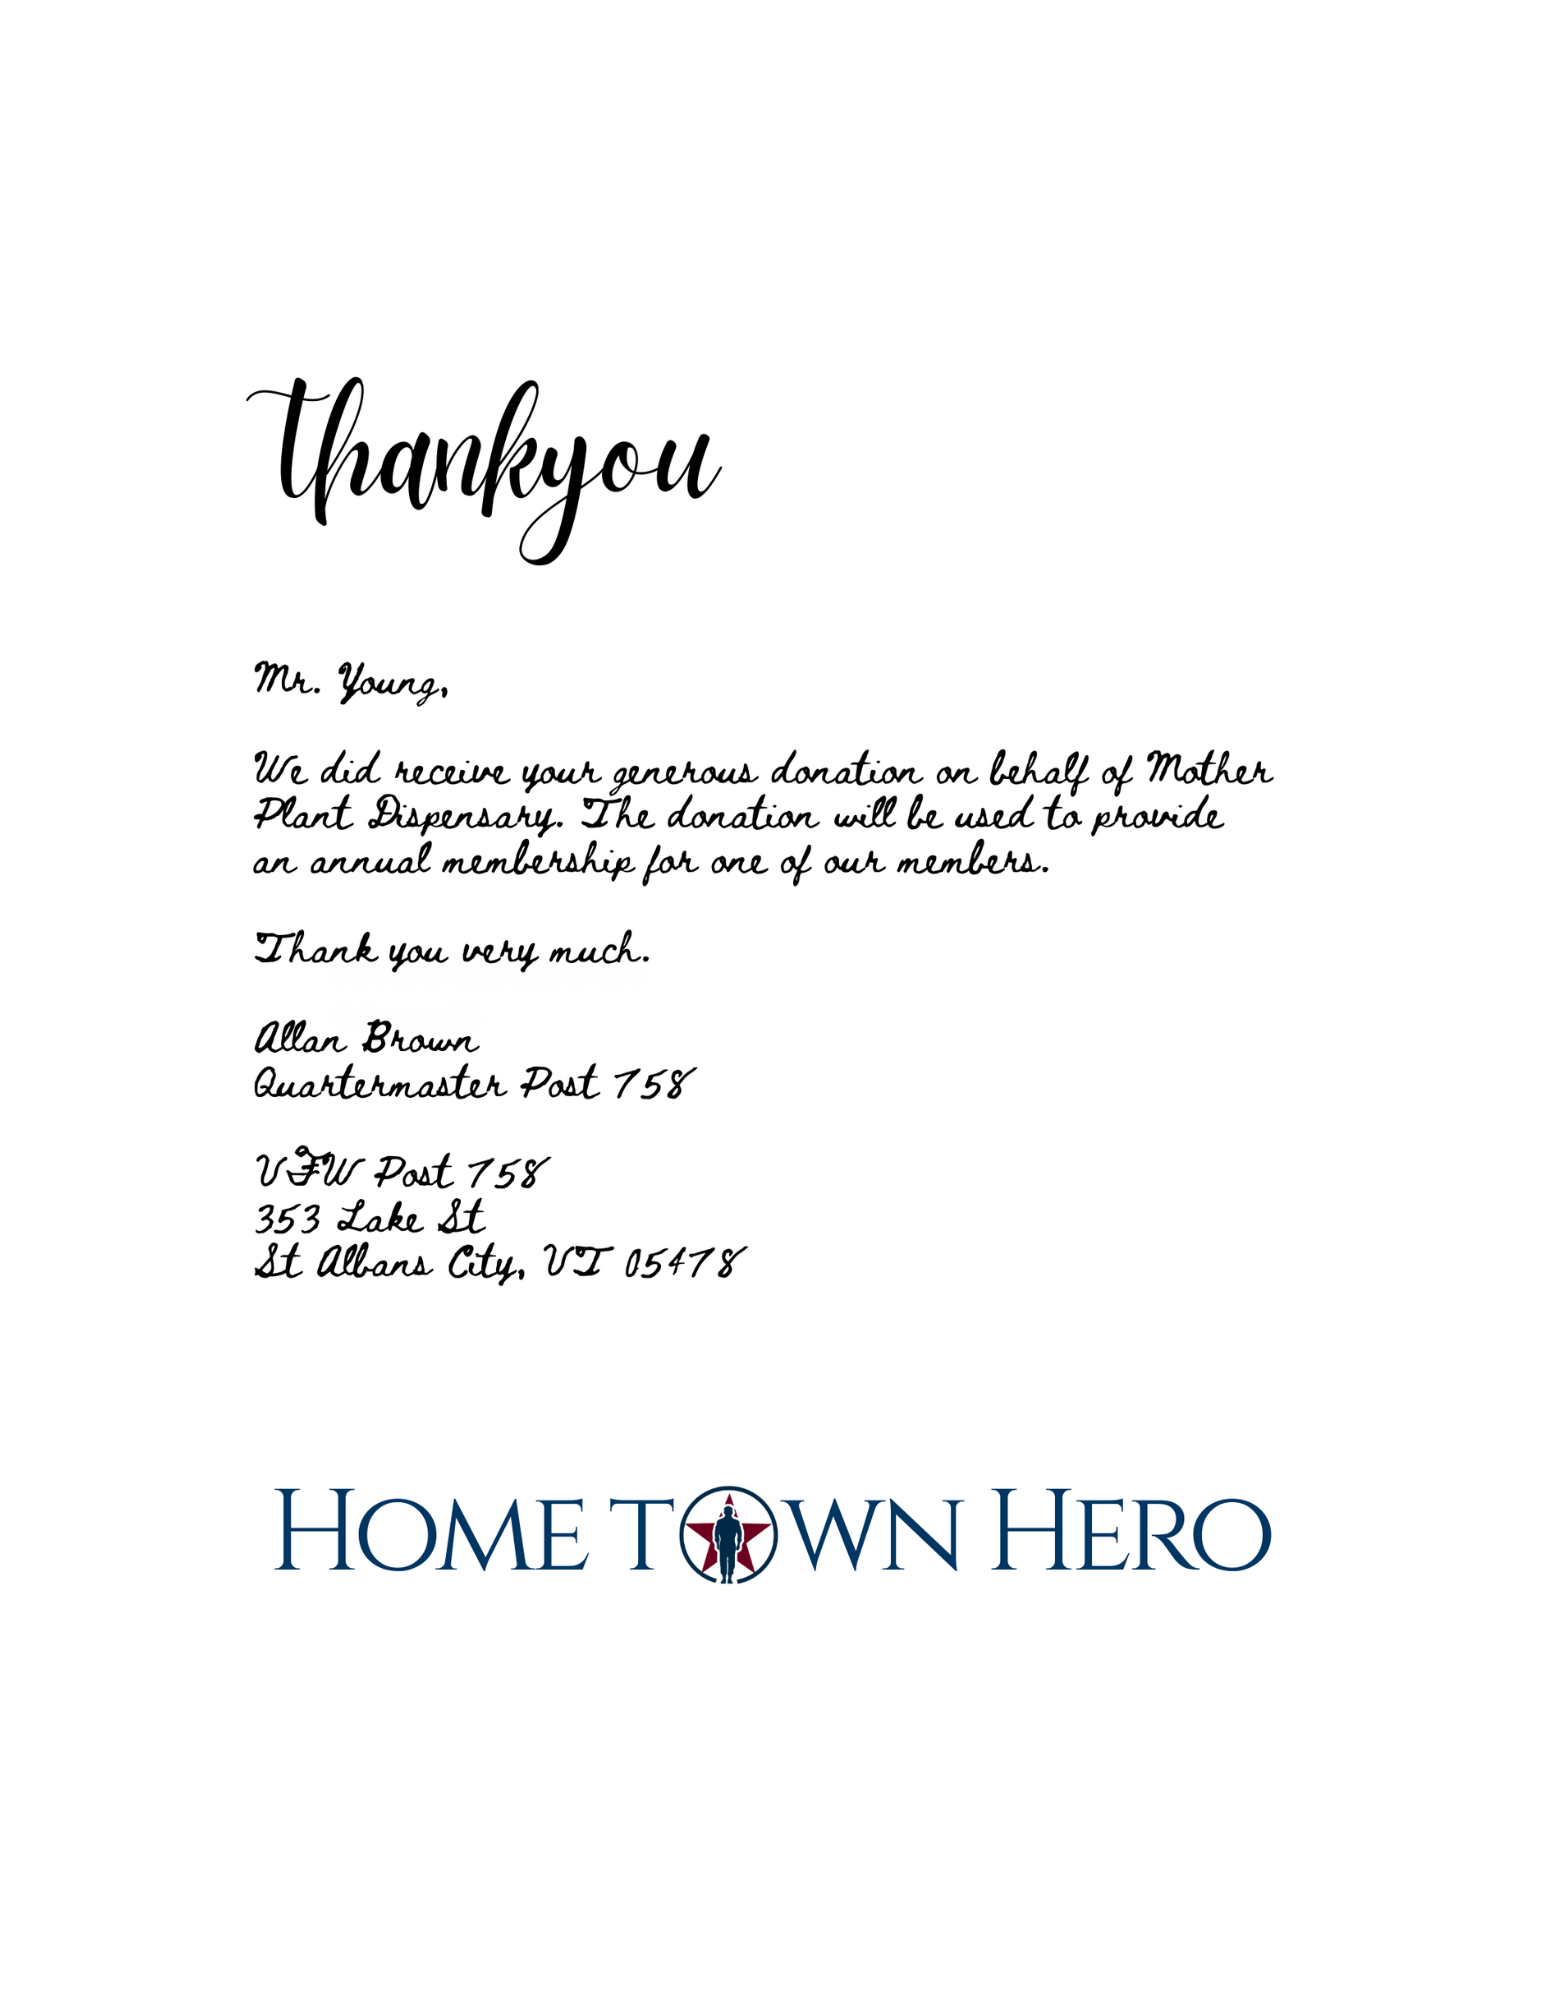 thankyou
Mr. Young,
We did receive your generous donation on behalf of Mother
Plant Dispensary. The donation will be used to provide
an annual membership for one of our members.
Thank you very much.
Allan Brown
Quartermaster Post 758
VFW Post 758
353 Lake St
St Albans City, VT 05478
HOME TOWN HERO